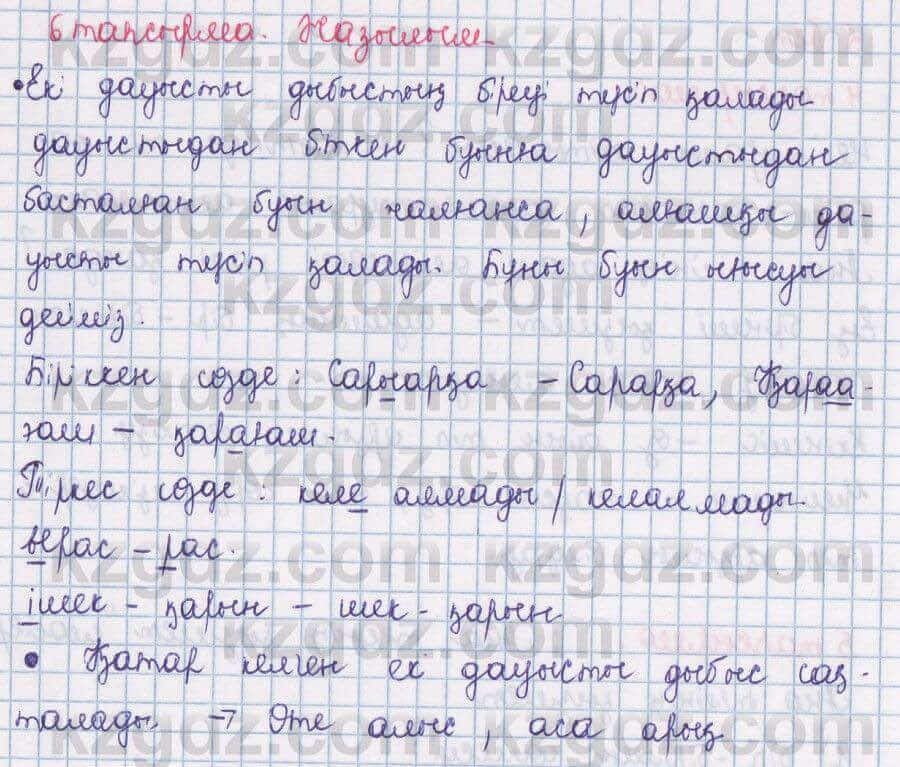 6 тапсырма. Жазылым
• Екі дауысты дыбыстың біреуі түсіп қалады
дауыстыдан біткен буынға дауыстыдан
басталған буын жалғанса, алғашқы да-
уысты түсіп қалады. Бұны буын ығысуы
дейміз.
Біріккен сөзде: Сарыарқа – Сарарқа, Қараа-
ғаш – қарағаш.
Тіркес сөзде: келе алмады / келалмады.
ырас – рас.
ішек - қарын – шек - қарын
• Қатар келген екі дауысты дыбыс сақ-
талады → Өте алыс, аса арық
kzgdz.com